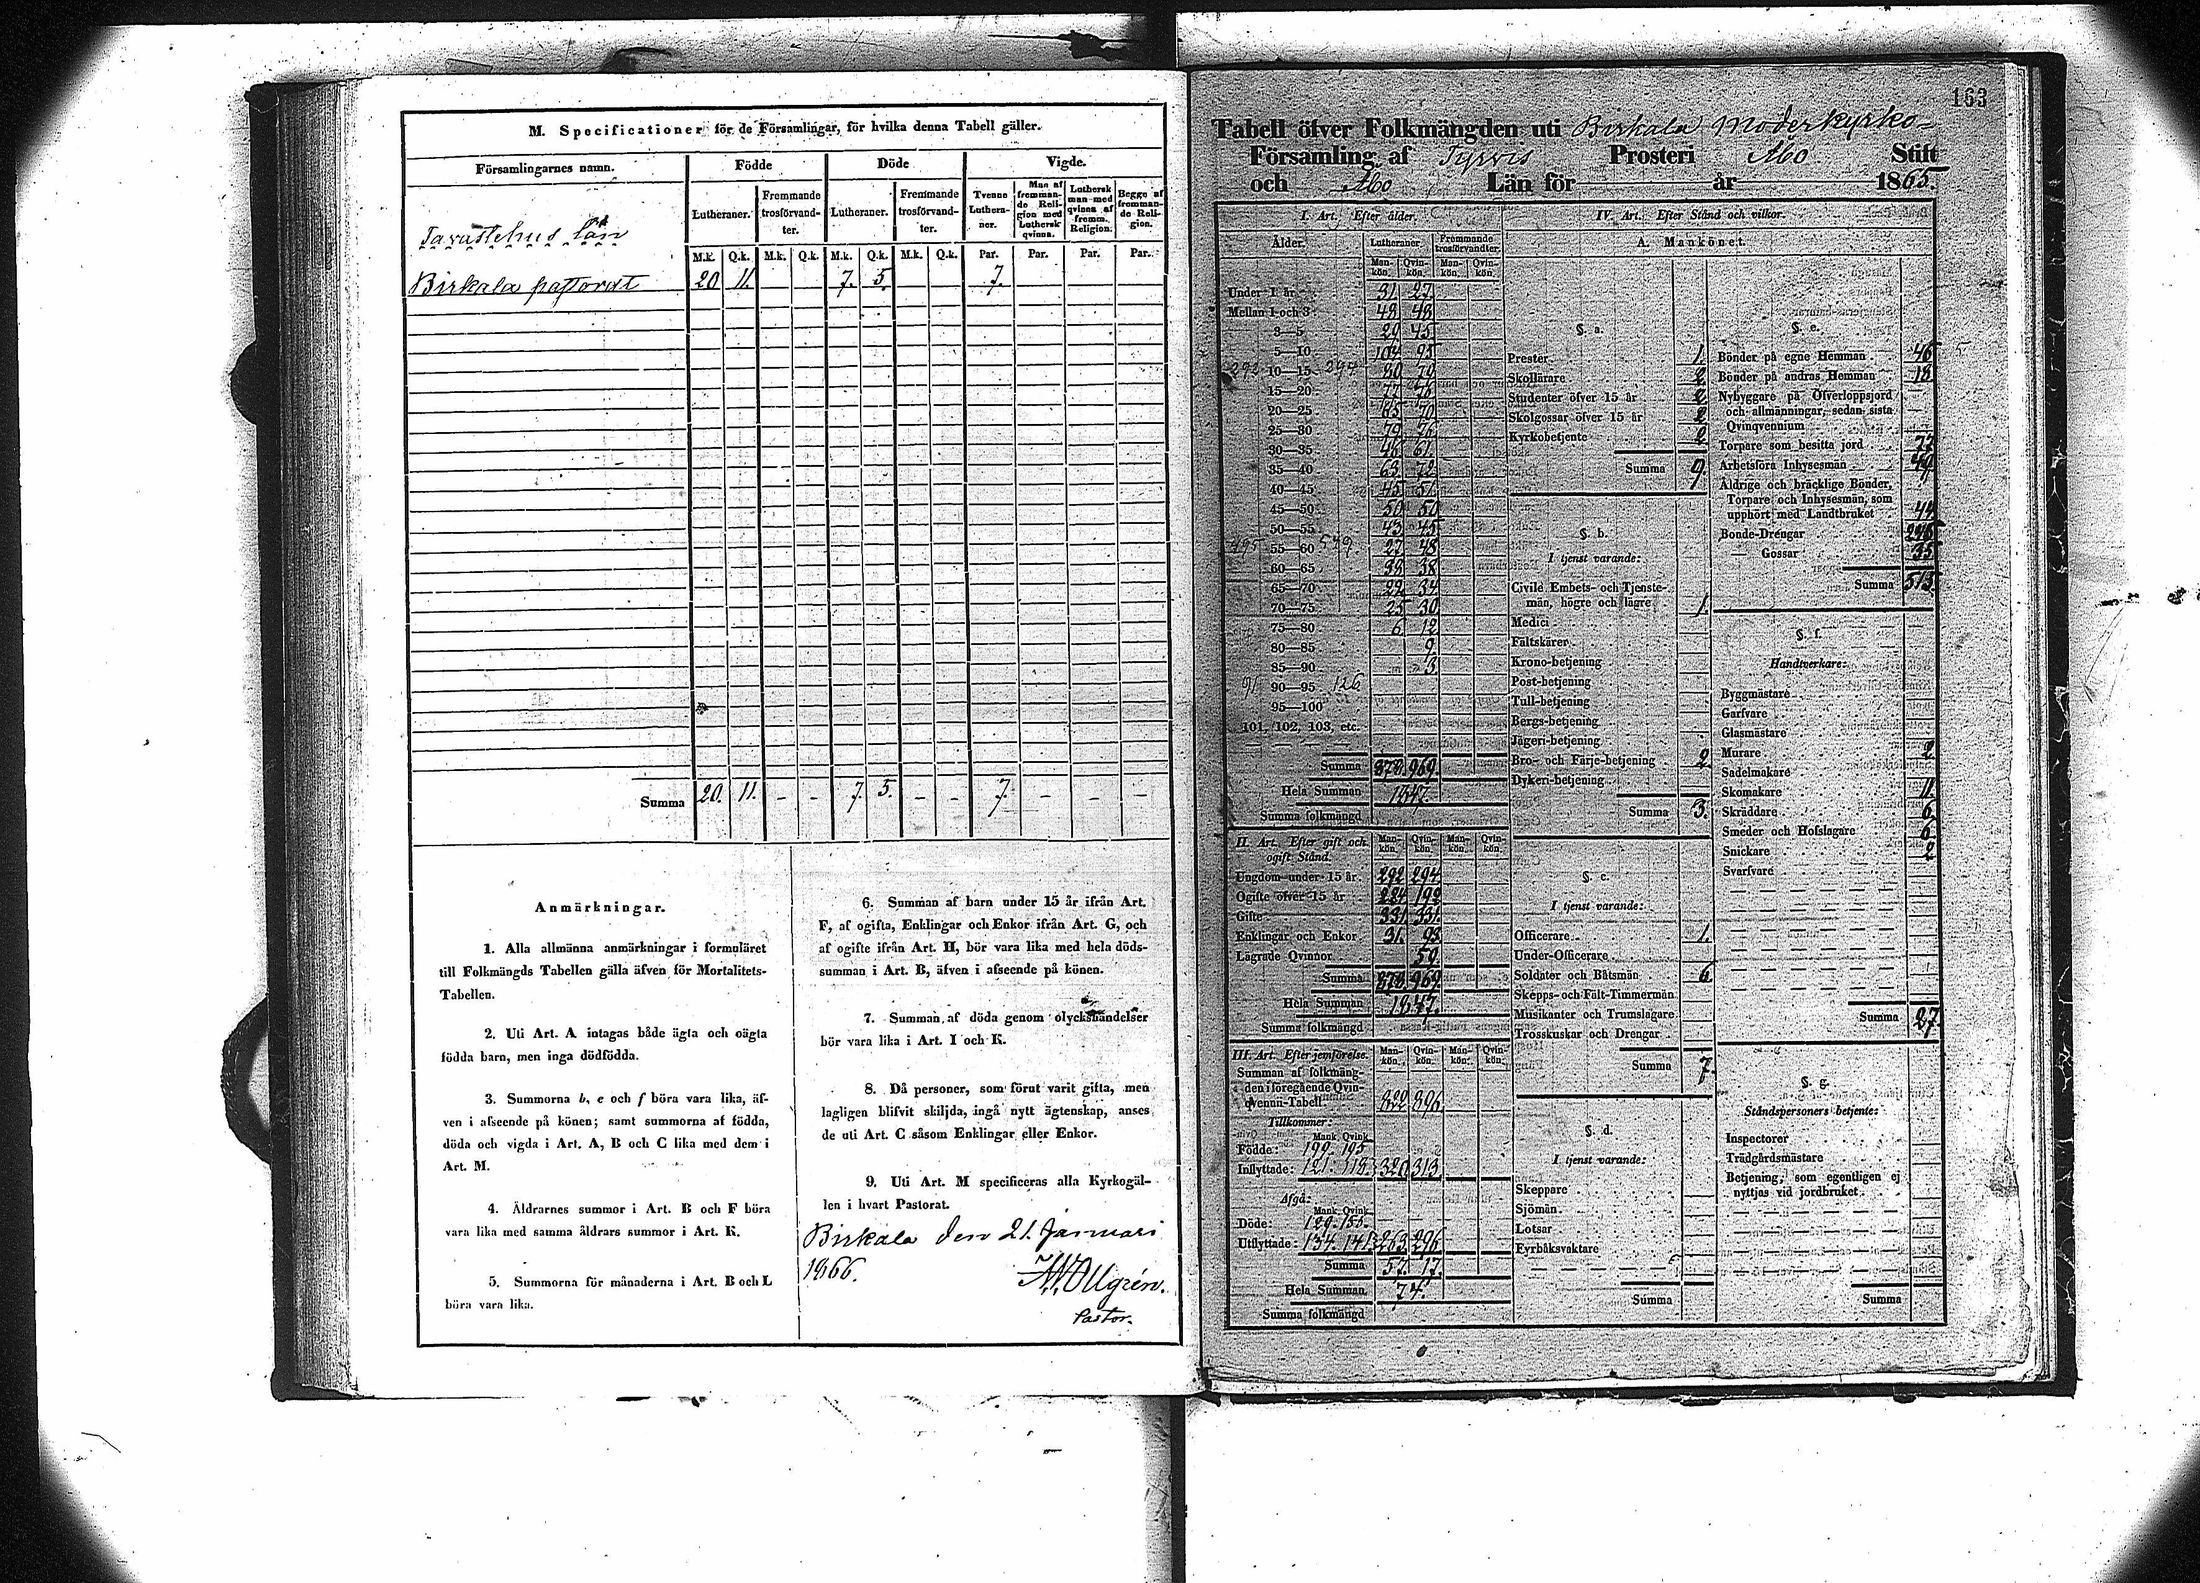 M. Specificationer för de Församlingar, för hvilka denna Tabell gäller.
Församlingarnes namn.
Födde
Döde
Vigde.
Lutheraner.
Fremmande trosförvandter.
Lutheraner.
Fremmande trosförvandter.
Tvenne Lutheraner.
Man af fremmande Religion med Luthersk qvinna.
Luthersk man med qvinna af fremm. Religion.
Begge af fremmande Religion.
Tavastehus län
M.k. Q.k. M.k. Q.k. M.k. Q.k. M.k. Q.k. Par. Par. Par. Par.
Birkala pastorat 20 11. 7. 5. 7.
Summa 20. 11. - - 7. 5. - - 7. - - -
Anmärkningar.
1. Alla allmänna anmärkningar i formuläret
till Folkmängds Tabellen gälla äfven för Mortalitets-
Tabellen.
2. Uti Art. A intagas både ägta och oägta
födda barn, men inga dödfödda.
3. Summorna b, e och f böra vara lika, äf-
ven i afseende på könen; samt summorna af födda,
döda och vigda i Art. A, B och C lika med dem i
Art. M.
4. Åldrarnes summor i Art. B och F böra
vara lika med samma åldrars summor i Art. K.
5. Summorna för månaderna i Art. B och L
böra vara lika.
6. Summan af barn under 15 år ifrån Art.
F, af ogifta, Enklingar och Enkor ifrån Art. G, och
af ogifte ifrån Art. H, bör vara lika med hela döds-
summan i Art. B, äfven i afseende på könen.
7. Summan af döda genom olyckshändelser
bör vara lika i Art. I och K.
8. Då personer, som förut varit gifta, men
lagligen blifvit skiljda, ingå nytt ägtenskap, anses
de uti Art. C såsom Enklingar eller Enkor.
9. Uti Art. M specificeras alla Kyrkogäl-
len i hvart Pastorat.
Birkala den 21. Januari
1866.
Pastor.
163
Tabell öfver Folkmängden uti Birkala Moderkyrko-
Församling af Tyrvis Prosteri Åbo Stift
och Åbo Län för år 1865.
I. Art. Efter ålder.
Ålder.
Lutheraner
Fremmande trosförvandter.
Man-kön. Qvin-kön. Man-kön. Qvin-kön.
Under 1 år 31. 27.
Mellan 1 och 3 48 48
3—5 29 45
5—10 104 95
292 10—15 294 80 79
15—20 77 76
20—25 65 70
25—30 79 76
30—35 48 61
35—40 63 72
40—45 45 51
45—50 50 50
50—55 43 45
495 55—60 549 27 48
60—65 38 38
65—70 22 34
70—75 25 30
75—80 6 12
80—85 9
85—90 3
91 90—95 126
95—100
101, 102, 103, etc.
Summa 878. 969.
Hela Summan 1847.
Summa folkmängd
II. Art. Efter gift och ogift Stånd.
Man-kön. Qvin-kön. Man-kön. Qvin-kön.
Ungdom under 15 år 292 294
Ogifte öfver 15 år 224 192
Gifte 331. 331.
Enklingar och Enkor 31. 93
Lägrade Qvinnor 59
Summa 878. 969.
Hela Summan 1847.
Summa folkmängd
III. Art. Efter jemförelse.
Man-kön. Qvin-kön. Man-kön. Qvin-kön.
Summan af folkmäng-
den i föregående Qvin-
qvenni-Tabell 822 896
Tillkommer:
Mank. Qvink.
Födde: 199. 195
Inflyttade: 121. 118 320 313
Afgå:
Mank. Qvink.
Döde: 129. 155.
Utflyttade: 134. 141. 263. 296
Summa 57. 17.
Hela Summan. 74.
Summa folkmängd
IV. Art. Efter Stånd och vilkor.
A. Mankönet.
§. a.
Prester 1.
Skollärare 2
Studenter öfver 15 år 2
Skolgossar öfver 15 år 2
Kyrkobetjente 2
Summa 9.
§. b.
I tjenst varande:
Civile Embets- och Tjenste-
män, högre och lägre 1.
Medici
Fältskärer
Krono-betjening
Post-betjening
Tull-betjening
Bergs-betjening
Jägeri-betjening
Bro- och Färje-betjening 2.
Dykeri-betjening
Summa 3.
§. c.
I tjenst varande:
Officerare 1.
Under-Officerare
Soldater och Båtsmän 6
Skepps- och Fält-Timmermän
Musikanter och Trumslagare
Trosskuskar och Drengar
Summa 7.
§. d.
I tjenst varande:
Skeppare
Sjömän
Lotsar
Fyrbåksvaktare
Summa
§. e.
Bönder på egne Hemman 46
Bönder på andras Hemman 18
Nybyggare på Öfverloppsjord
och allmänningar, sedan sista
Qvinqvennium
Torpare som besitta jord 77
Arbetsföra Inhysesmän 49
Åldrige och bräcklige Bönder,
Torpare och Inhysesmän, som
upphört med Landtbruket 44
Bonde-Drengar 246
— Gossar 35
Summa 515.
§. f.
Handtverkare:
Byggmästare
Garfvare
Glasmästare
Murare 2
Sadelmakare
Skomakare 11.
Skräddare 6
Smeder och Hofslagare 6
Snickare 2
Svarfvare
Summa 27.
§. g.
Ståndspersoners betjente:
Inspectorer
Trädgårdsmästare
Betjening, som egentligen ej
nyttjas vid jordbruket
Summa